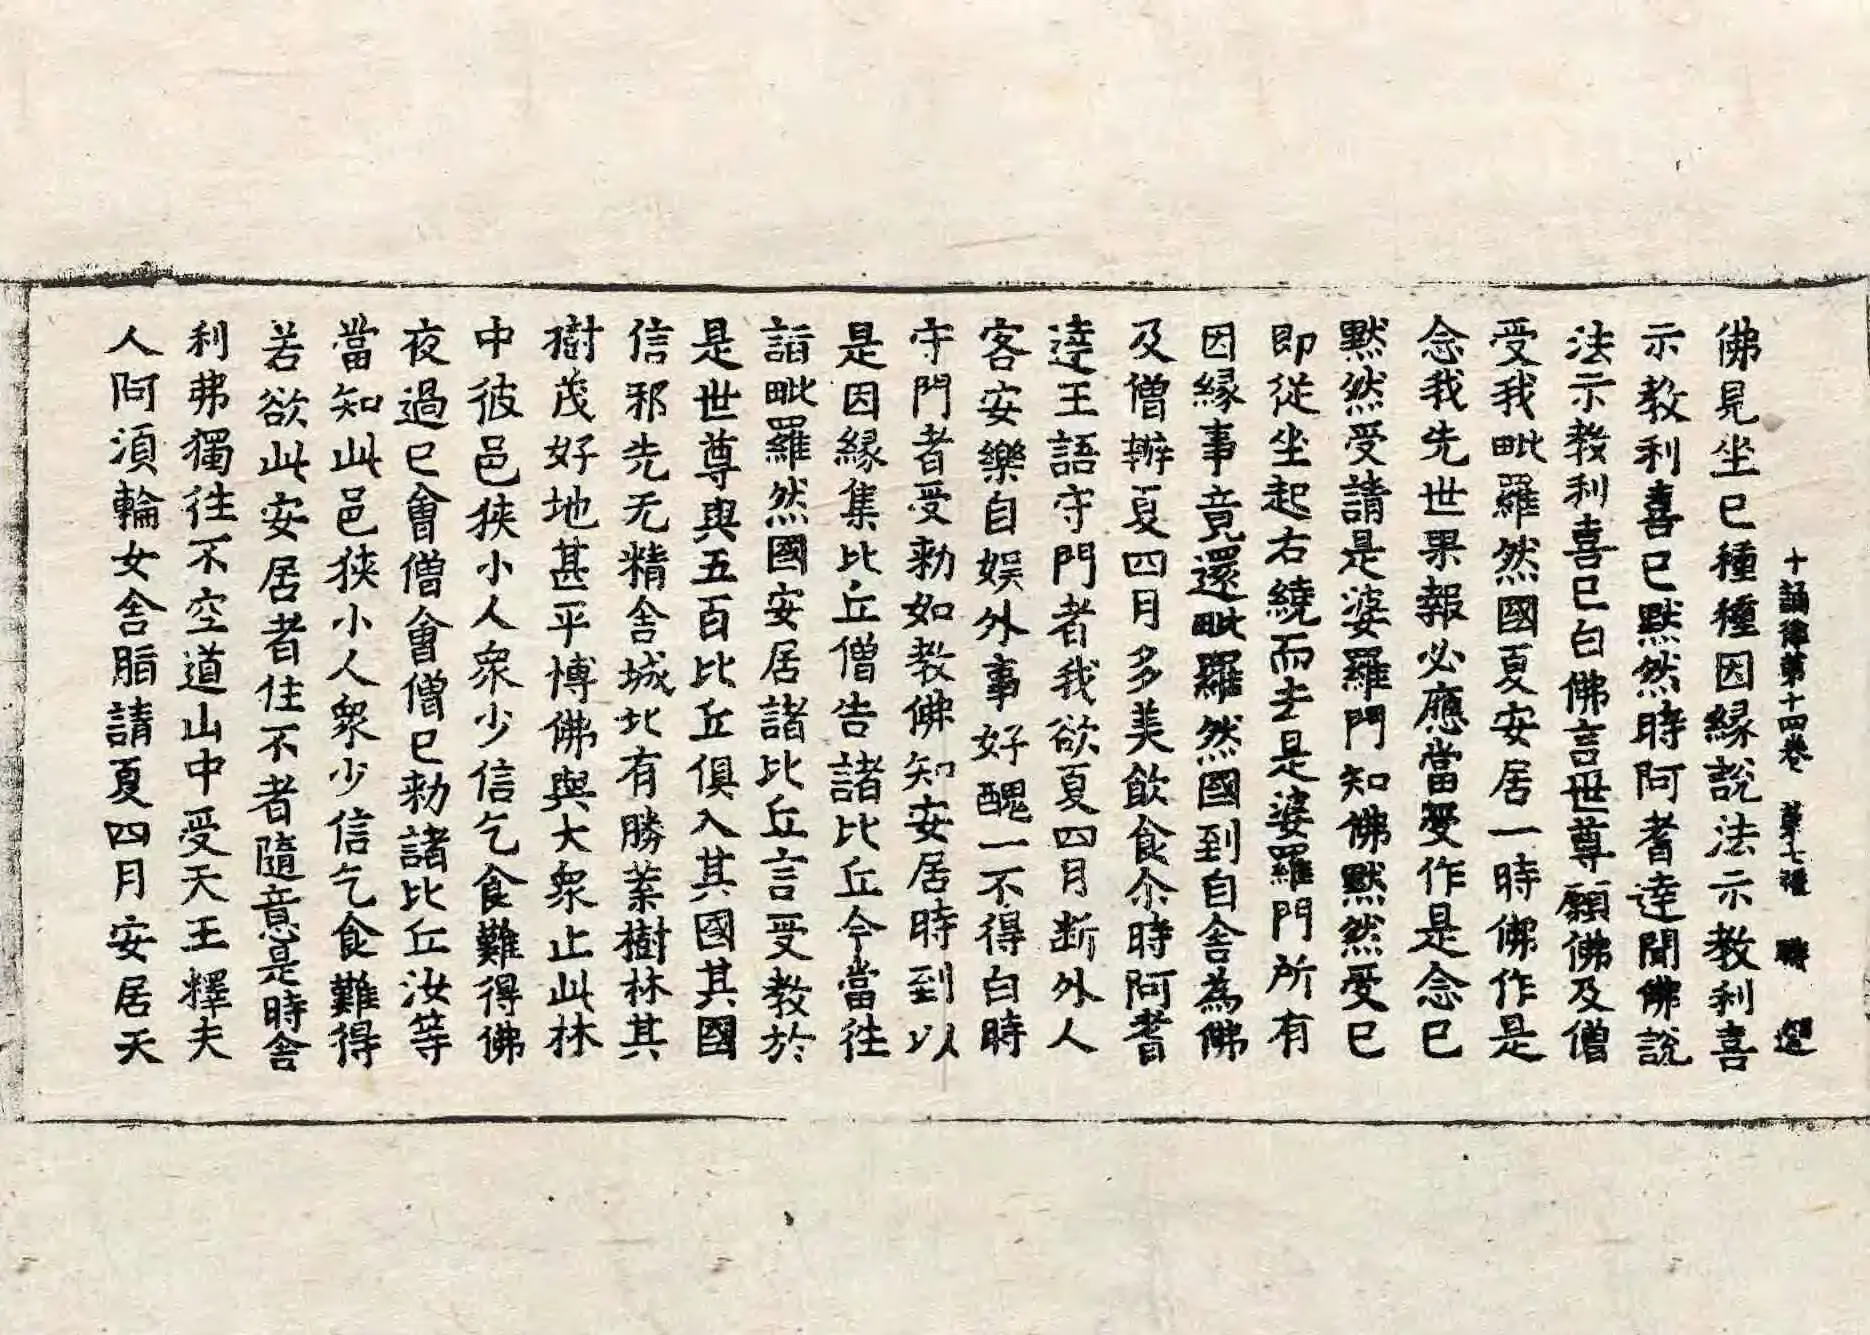 十誦律第十四卷 第七張
佛見坐已種種因緣說法示教利喜
示教利喜已默然時阿耆達聞佛說
法示教利喜已白佛言世尊願佛及僧
受我毗羅然國夏安居一時佛作是
念我先世果報必應當受作是念已
默然受請是婆羅門知佛默然受已
即從坐起右繞而去是婆羅門所有
因緣事竟還毗羅然國到自舍為佛
及僧辦夏四月多美飲食尒時阿耆
達王語守門者我欲夏四月断外人
客安樂自娛外事好醜一不得白時
守門者受勑如教佛知安居時到以
是因緣集比丘僧告諸比丘今當往
詣毗羅然國安居諸比丘言受教於
是世尊與五百比丘俱入其國其國
信邪先无精舍城北有勝葉樹林其
樹茂好地甚平博佛與大衆止此林
中彼邑狹小人衆少信乞食難得佛
夜過已會僧會僧已勑諸比丘汝等
當知此邑狹小人衆少信乞食難得
若欲此安居者住不者隨意是時舍
利弗獨往不空道山中受天王釋夫
人阿湏輪女舍脂請夏四月安居天